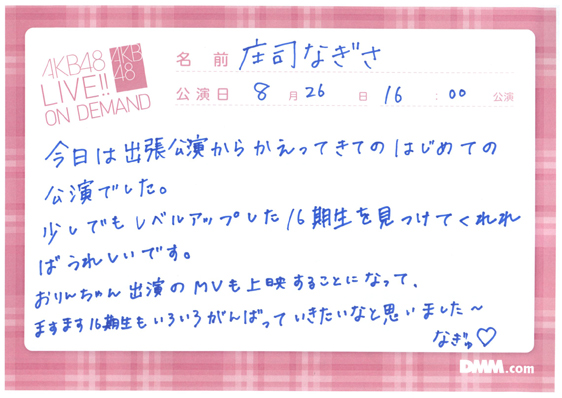 AKB48
AKB
48
LIVE!!
ON DEMAND
名前 庄司なぎさ
公演日 8月26日 16:00公演
今日は出張公演からかえってきてのはじめての
公演でした。
少しでもレベルアップした16期生を見つけてくれれ
ばうれしいです。
おりんちゃん出演のMVも上映することになって、
ますます16期生もいろいろがんばっていきたいなと思いました〜
なぎゅ♡
DMM.com